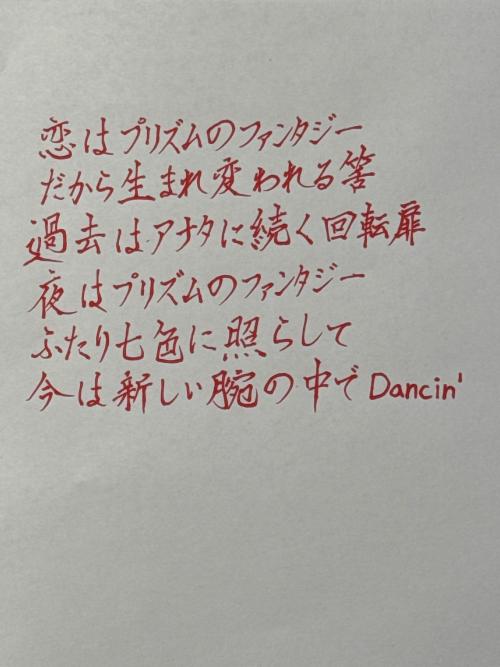 恋はプリズムのファンタジー
だから生まれ変われる筈
過去はアナタに続く回転扉
夜はプリズムのファンタジー
ふたり七色に照らして
今は新しい腕の中でDancin'